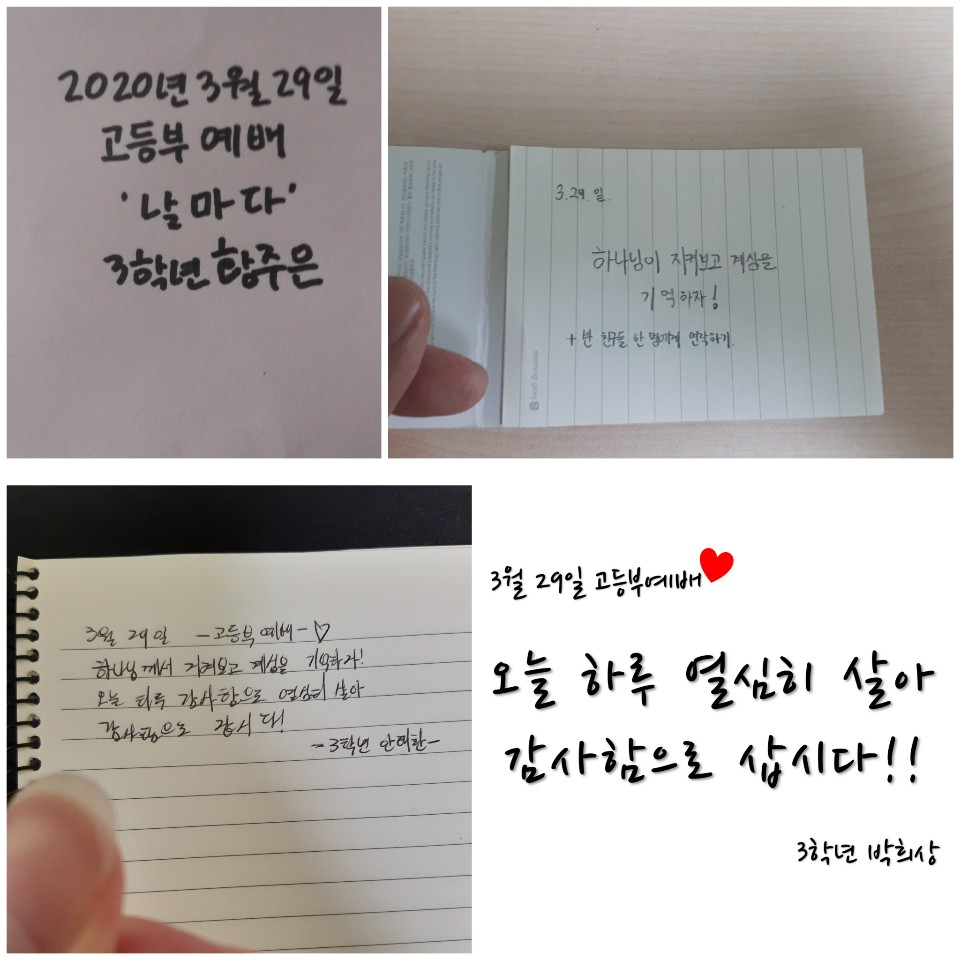 2020년 3월 29일
고등부 예배
'날마다'
3학년 함주은
3. 29. 일.
하나님이 지켜보고 계심을
기억하자!
+ 반 친구들 한 명에게 연락하기.
morning glory
3월 29일 -고등부 예배-♡
하나님께서 지켜보고 계심을 기억하자!
오늘 하루 감사함으로 열심히 살아
감사함으로 갑시다!
-3학년 안태환-
3월 29일 고등부예배
오늘 하루 열심히 살아
감사함으로 삽시다!!
3학년 박희상